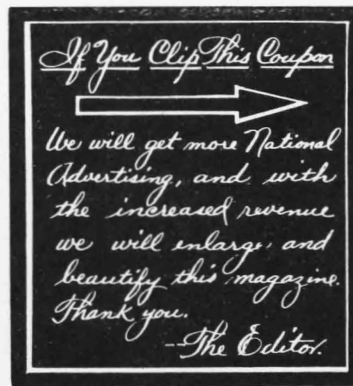 If You Clip This Coupon
We will get more National
Advertising, and with
the increased revenue
we will enlarge and
beautify this magazine.
Thank you.
--The Editor.